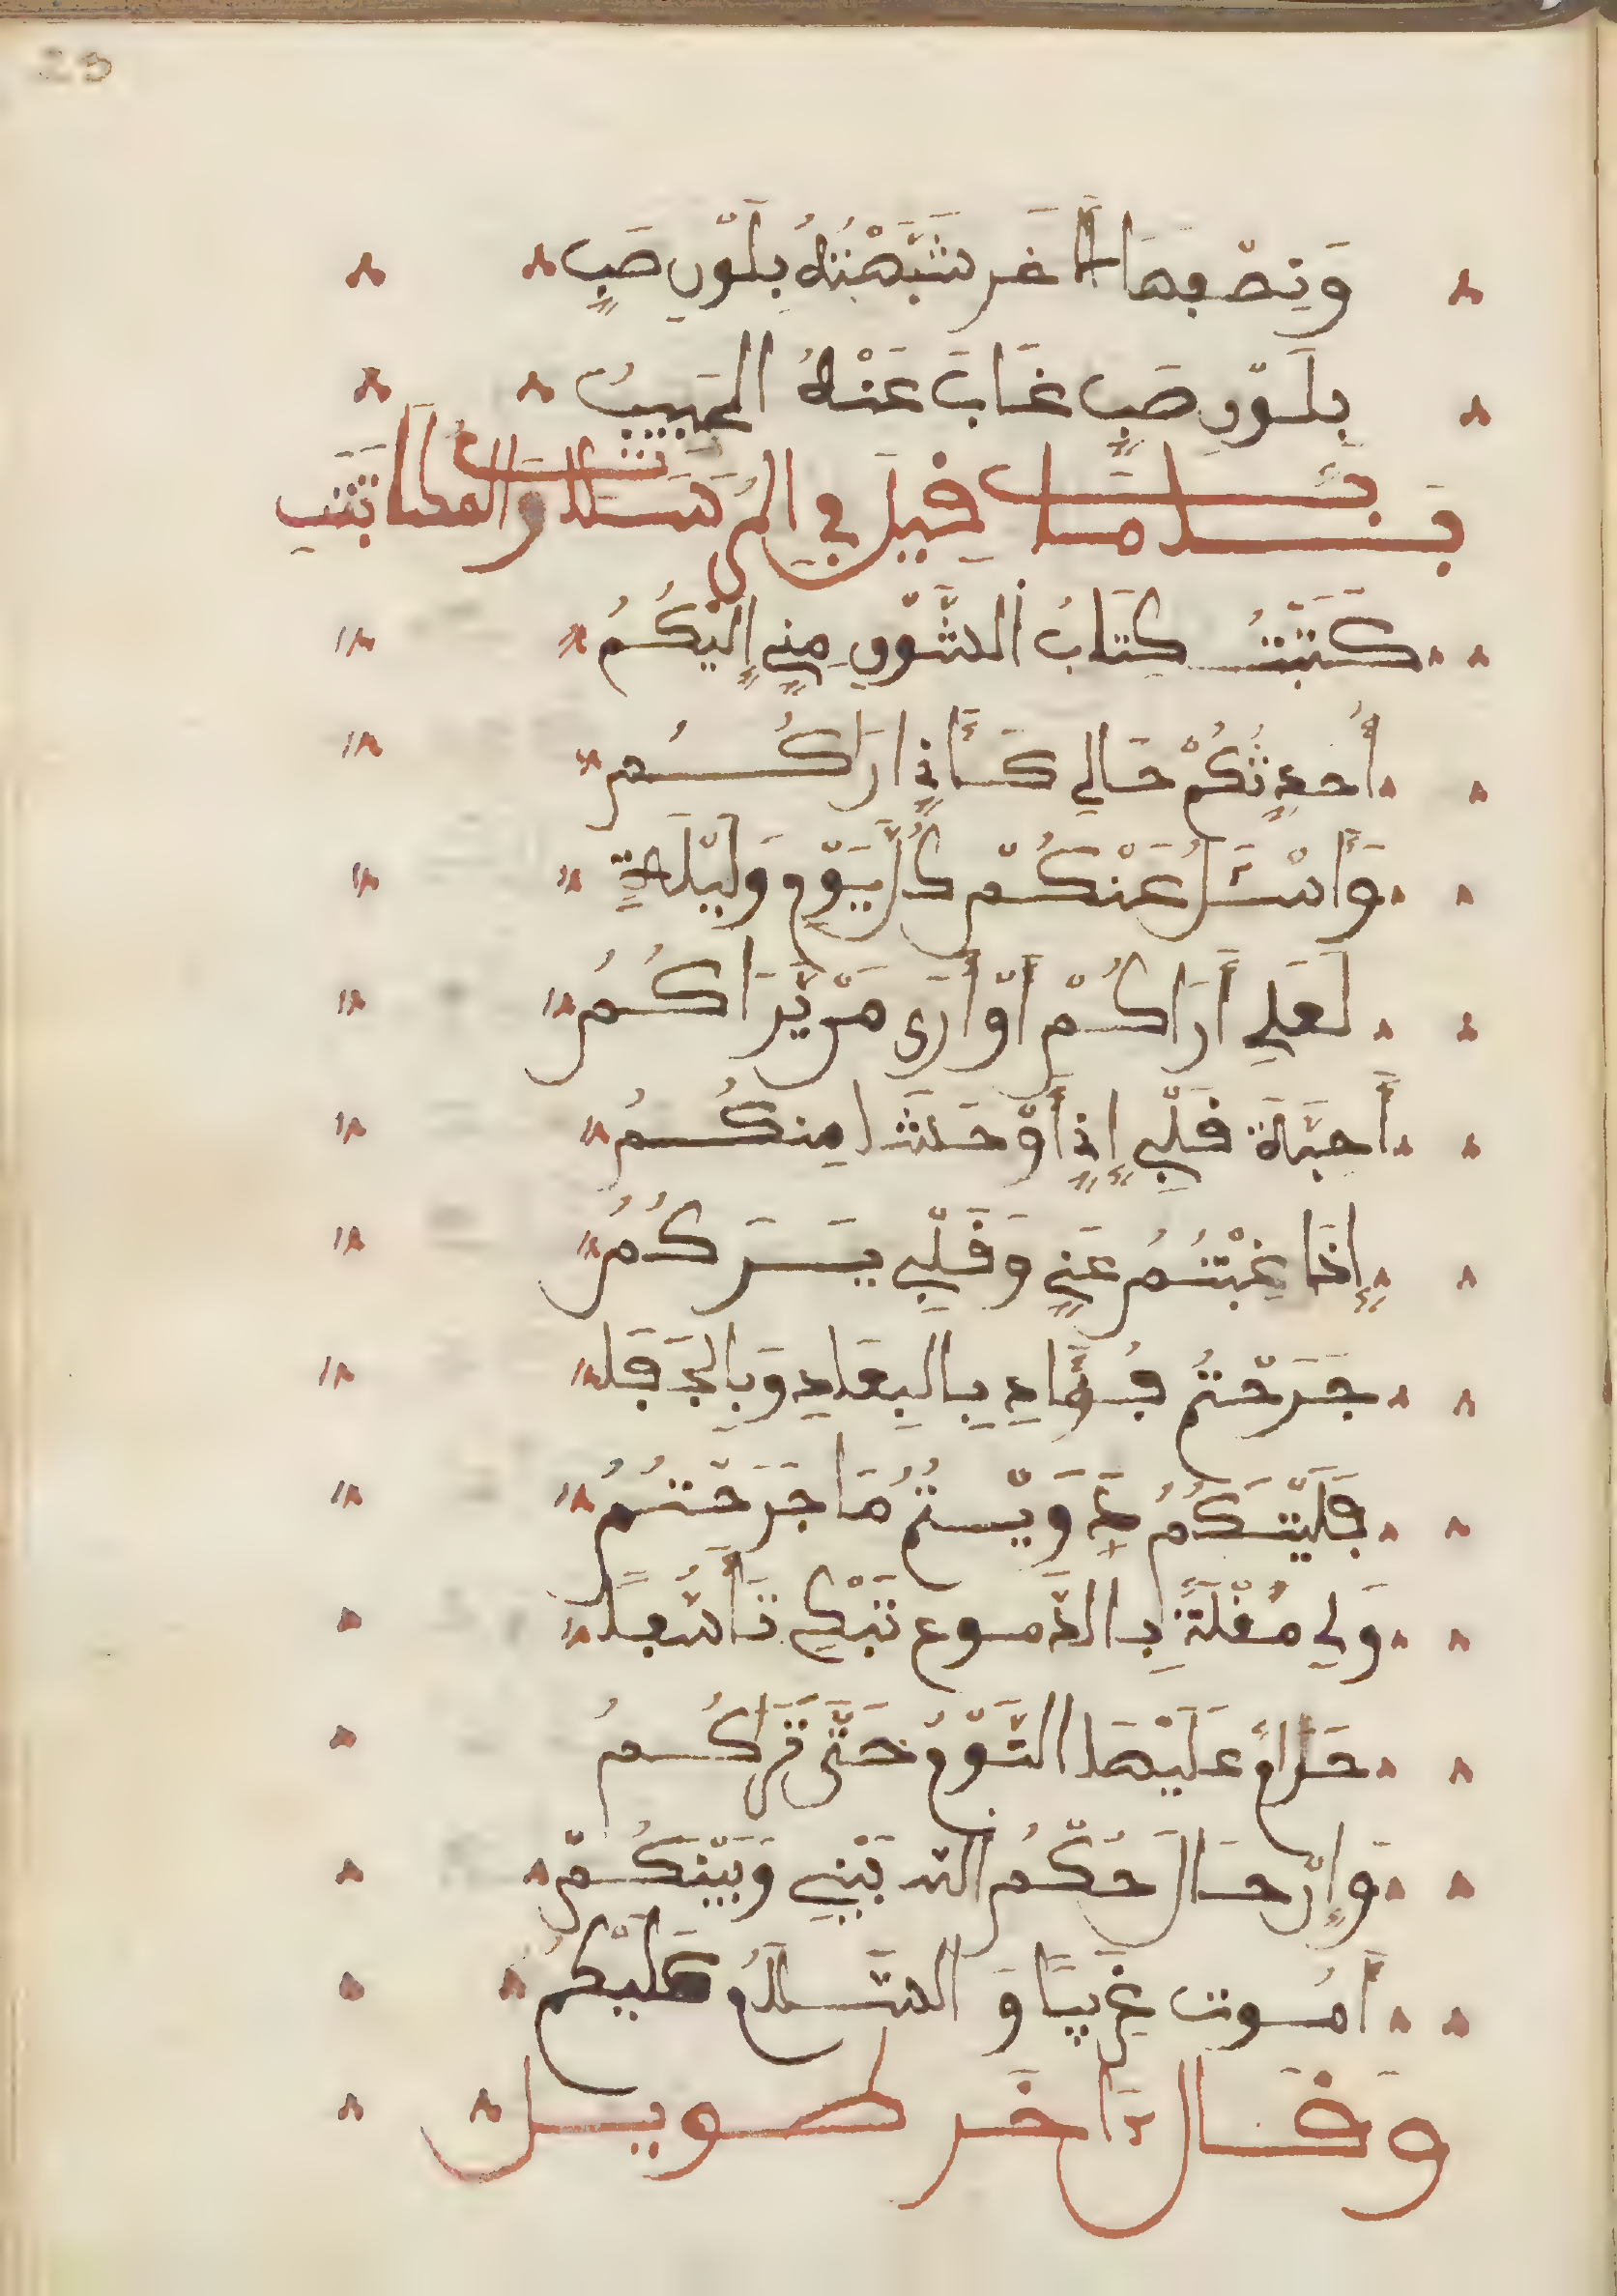 23
وَنِصْفِهَا الَاخَر شَبَّهْتُهُ بِلَوْنِ صَبٍ
بِلَوْنِ صَبٍ غَابَ عَنْهُ الحَبِيبُ
بَاب مَا قِيلَ فِي المُرَاسَلَات وَالمُطَالَبَاتِ
كَتَبْتُ كِتَابُ الشَّوْقِ مِنِي إِلَيْكُمُ
أُحَدِثُكُمْ حَالِي كَأَنِي ارَاكُمُ
وَأَسْئَلُ عَنْكُمْ كُلَّ يَوْمٍ وَلَيْلَةٍ
لَعَلِي أَرَاكُمْ أَوْ أَرَى مَنْ يَّرَاكُمُ
أَحِبَّةَ قَلْبِي إِنِي أَوْحَشَنَا مِنكُمُ
إِذَا غِبْتُمُ عَنِي وَقَلْبِي يَرَكُمُ
جَرَحْتُمْ فُؤَادِي بِالبِعَادِ وَبِالجَفَا
فَلَيْتَكُمُ دَاوَيْتُمُ مَا جَرَحْتُمُ
وَلِي مُقْلَةٌ بِالدُّمُوعِ تَبْكِي تَأَسُّفًا
حَرَامٌ عَلَيْهَا النَّوْمُ حَتَّى تَرَاكُمُ
وَإِنْ حَالَ حُكْمُ اللهِ بَيْنِي وَبَيْنَكُمْ
أَمُوت غَرِيبًا وَالسَّلَامُ عَلَيْكُمُ
وَقَالَ ءَاخَر طويل